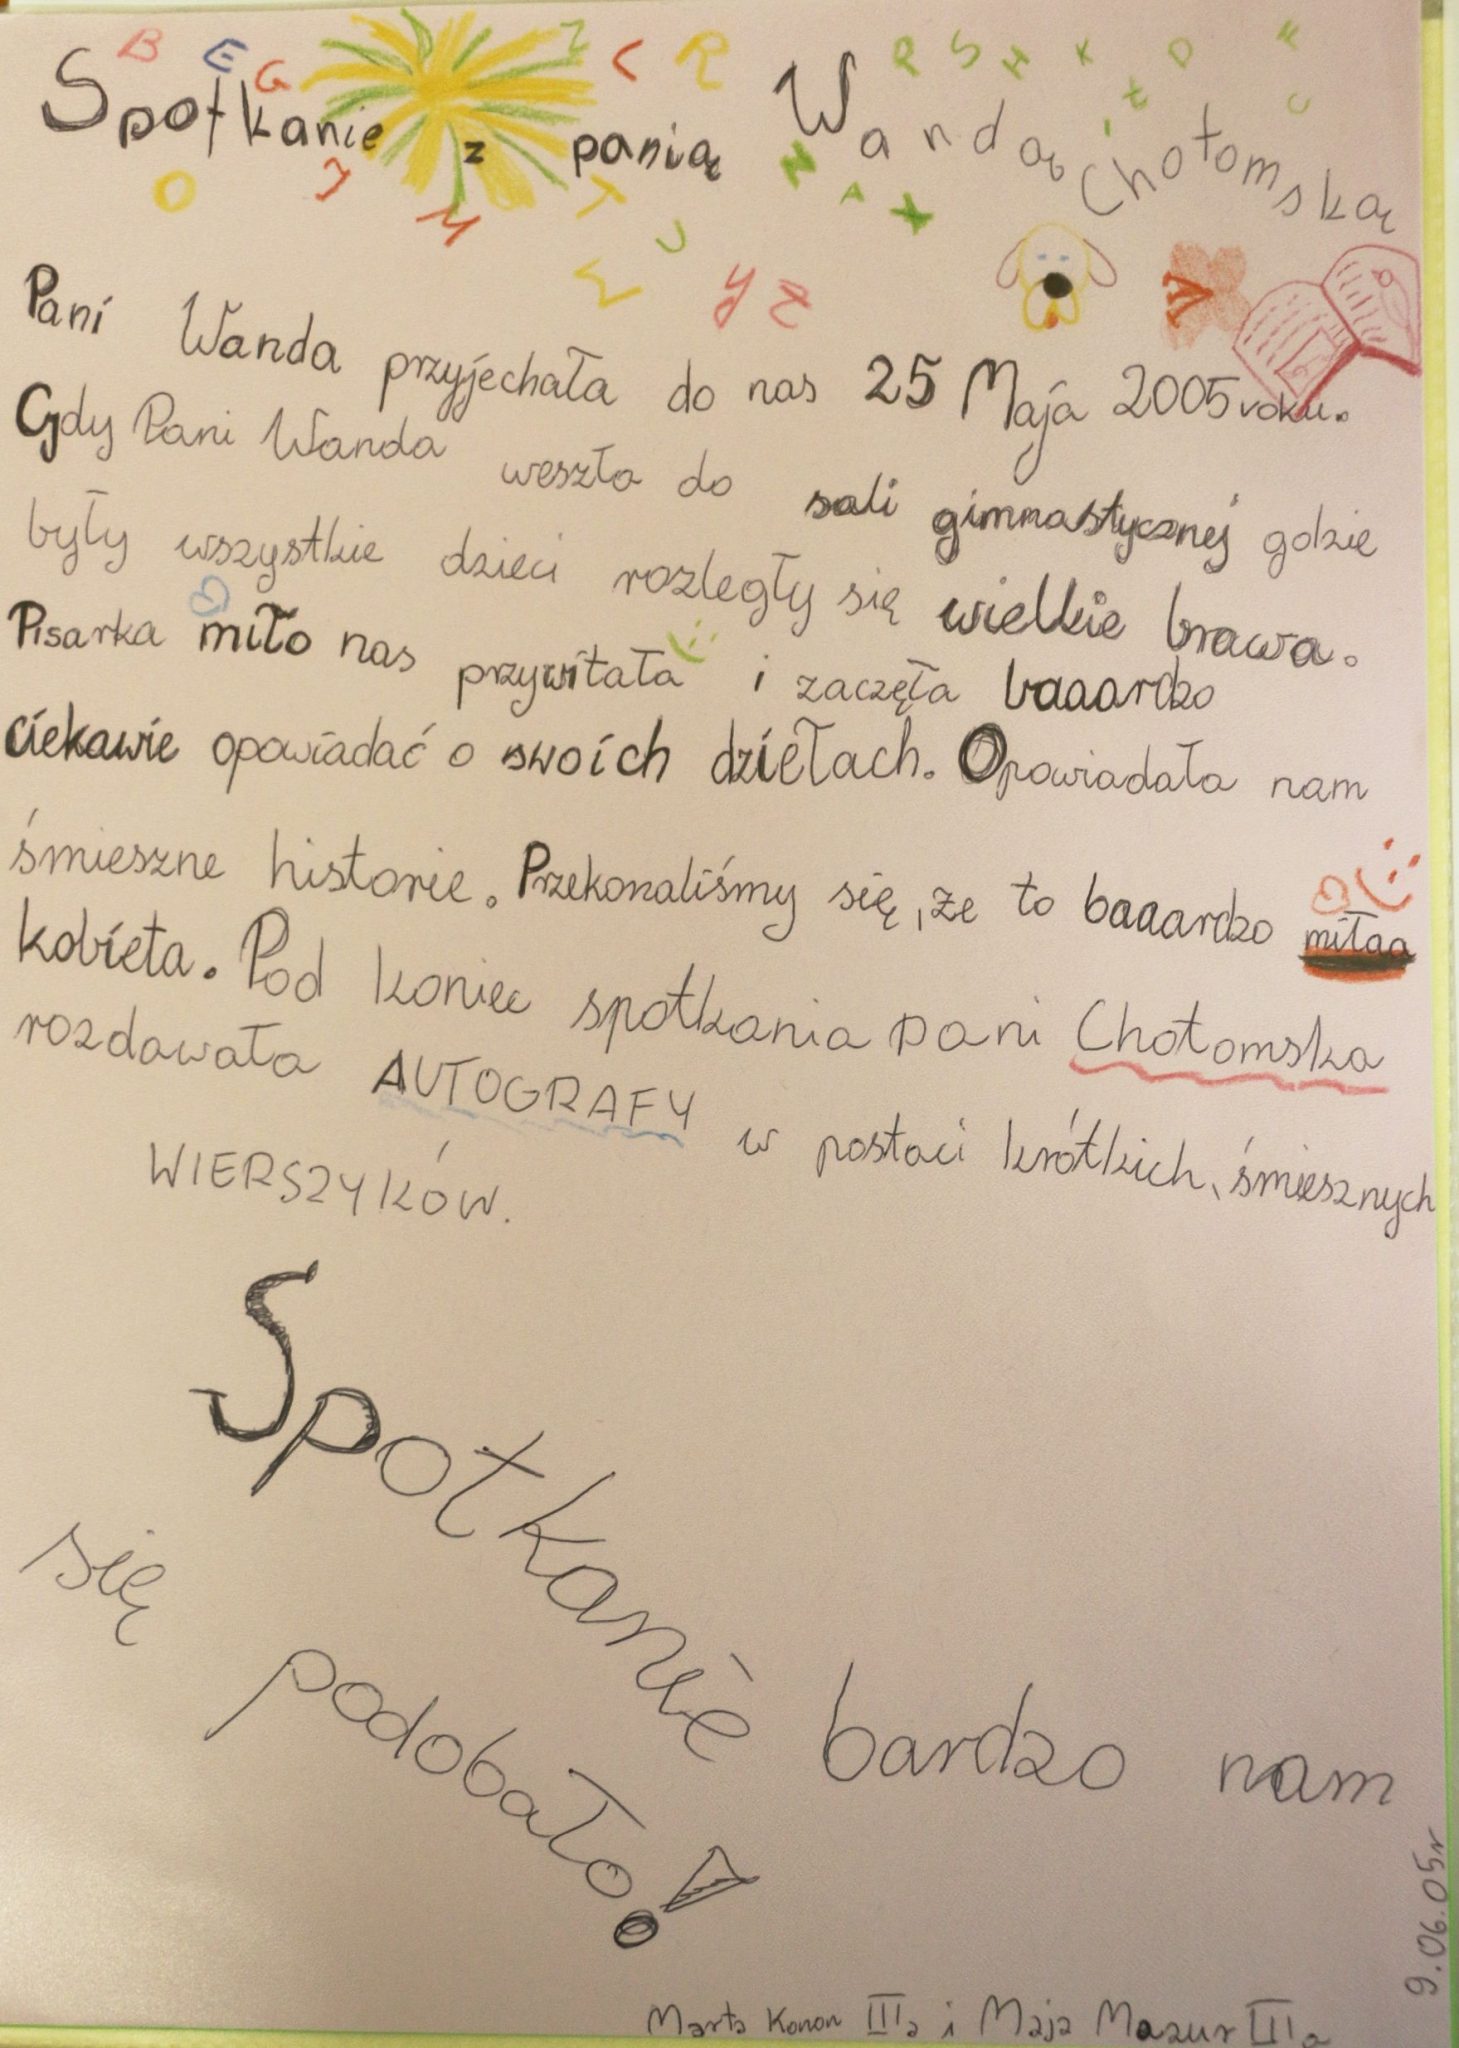 B E G Z C R P S H K Ł D F C
Spotkanie z panią Wandą Chotomską
O J M T U N A X
W Y Z
Pani Wanda przyjechała do nas 25 Maja 2005 roku.
Gdy Pani Wanda weszła do sali gimnastycznej gdzie
były wszystkie dzieci rozległy się wielkie brawa.
Pisarka miło nas przywitała i zaczęła baaardzo
ciekawie opowiadać o swoich dziełach. Opowiadała nam
śmieszne historie. Przekonaliśmy się, że to baaardzo miłaa
kobieta. Pod koniec spotkania pani Chotomska
rozdawała AUTOGRAFY w postaci krótkich, śmiesznych
WIERSZYKÓW.
Spotkanie bardzo nam
się podobało!
9.06.05r
Marta Konon IIIa i Maja Mazur IIIa